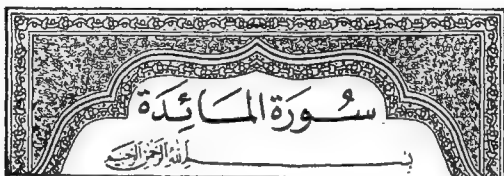 سُورَةُ المَائِدَة
بِسْمِ اللَّهِ الرَّحْمَنِ الرَّحِيمِ